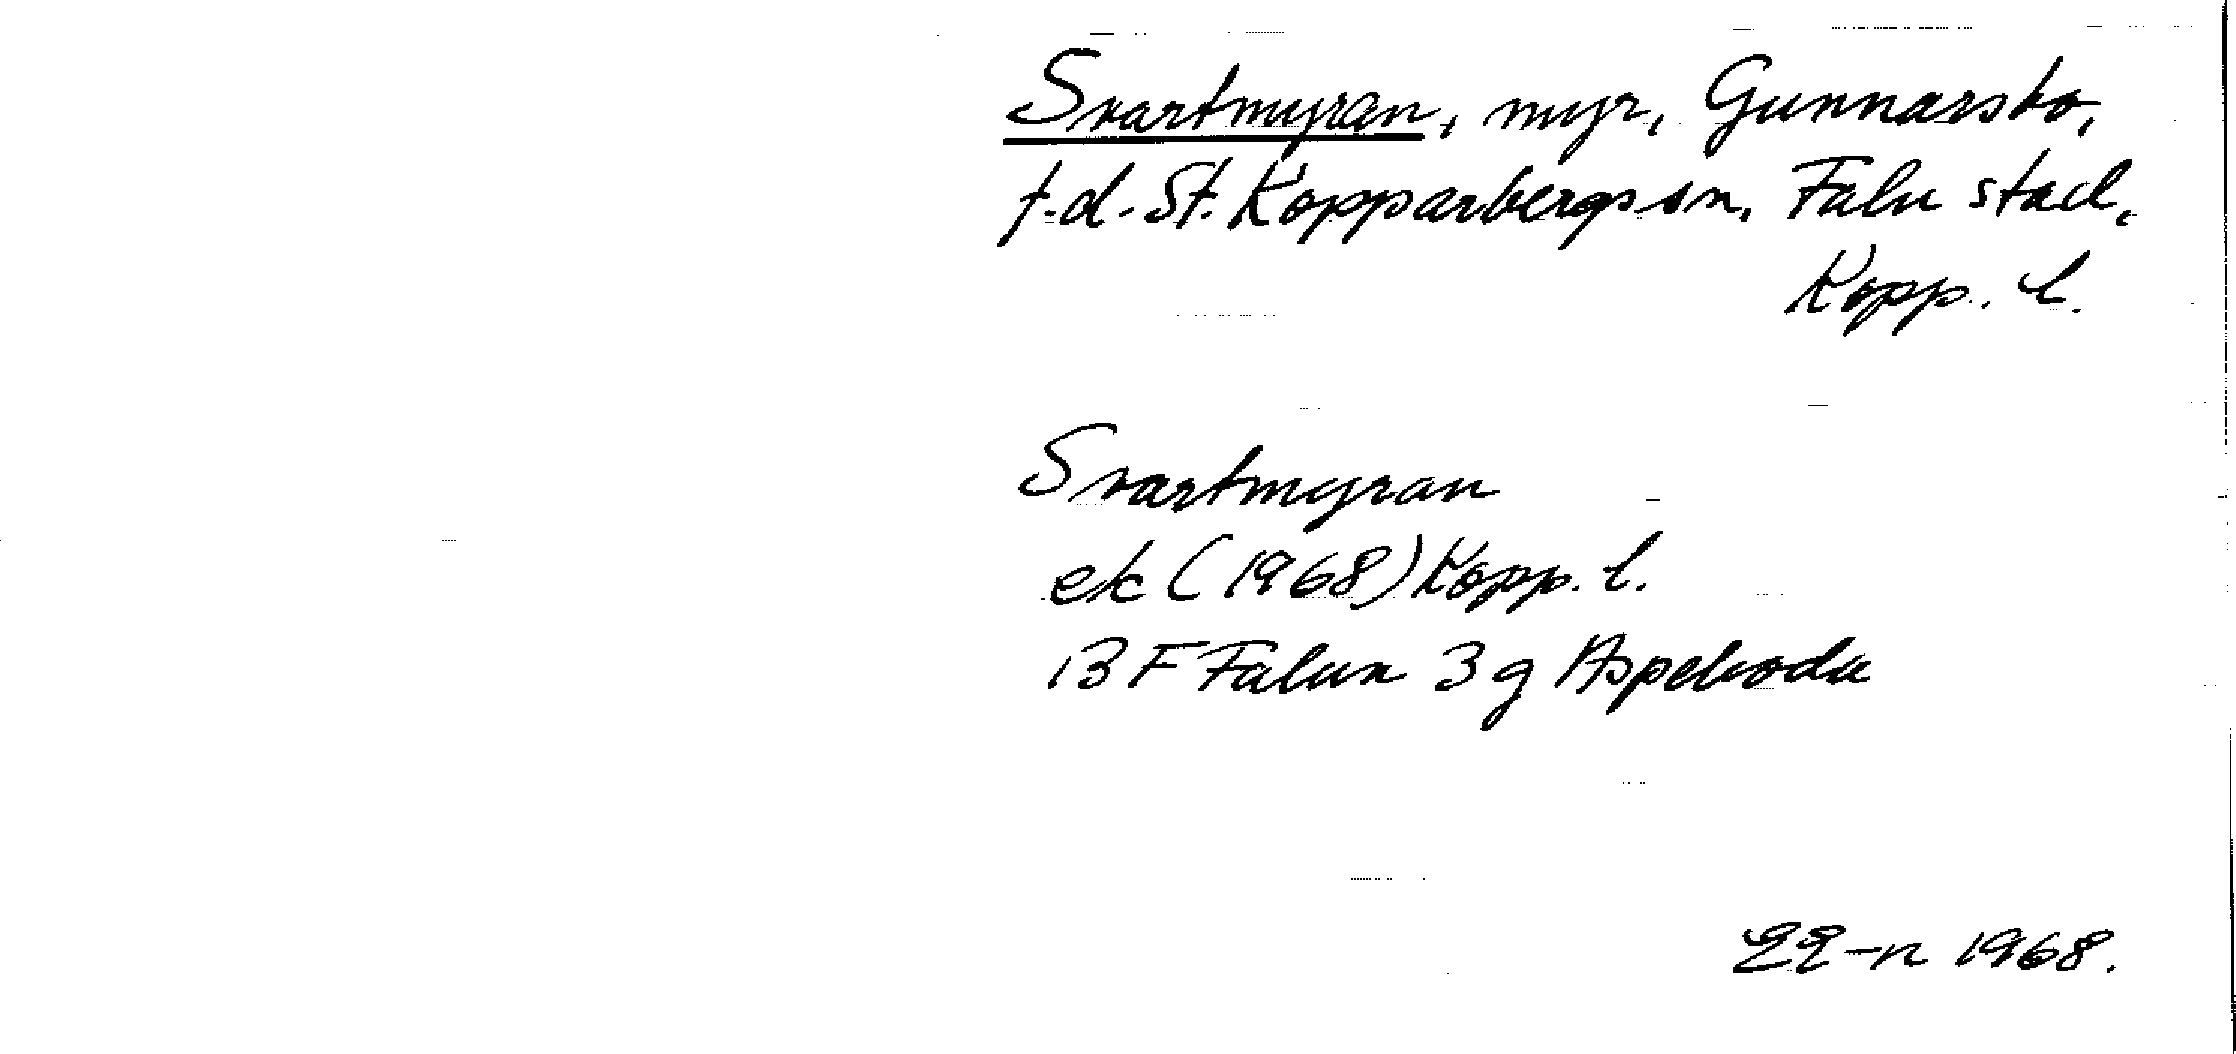 Svartmyran, myr, Gunnarsbo,
f.d. St. Kopparbergs sn, Falu stad,
Kopp. l.
Svartmyran
ek (1968) Kopp. l.
13 F Falun 3 g Aspeboda
1968.